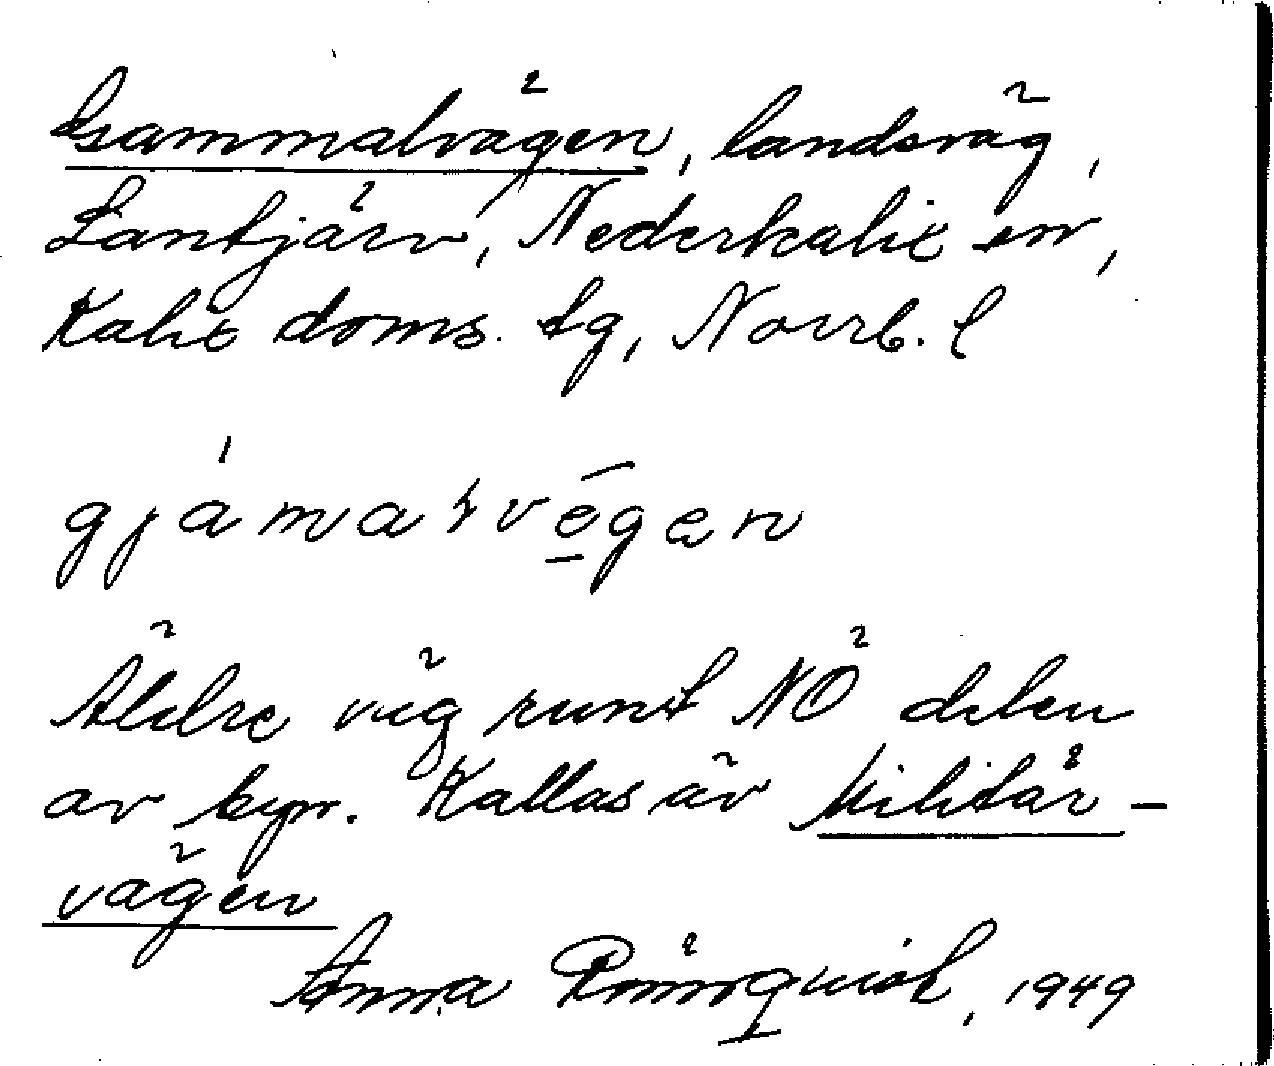 Gammalvägen, landsväg,
Lantjärv, Nederkalix sn,
Kalix doms. tg, Norrb. l
Äldre väg runt NÖ delen
av byn. Kallas äv Militär-
vägen
Anna Rönnquist, 1949